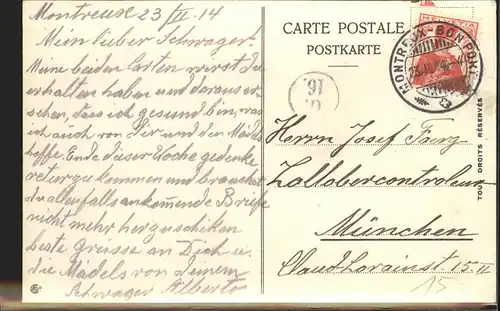 Montreuse 23/III.14
Mein lieber Schwager!
Meine beiden Carten wirst du
erhalten haben und daraus er-
sehen, dass ich gesund bin, was
ich auch von Dir und den Mädels
hoffe. Ende dieser Woche gedenke
retur zu kommen und brauchst
du allenfalls ankommende Briefe
nicht mehr herzuschicken
beste Grüsse an Dich u.
die Mädels von deinem
Schwager Alberto
CARTE POSTALE
POSTKARTE
HELVETIA
MONTREUX-BON PORT
16.
Herrn Josef
Zollobercontroleur
München
Claud Lorrainst 15.II
15
TOUS DROITS RÉSERVÉS